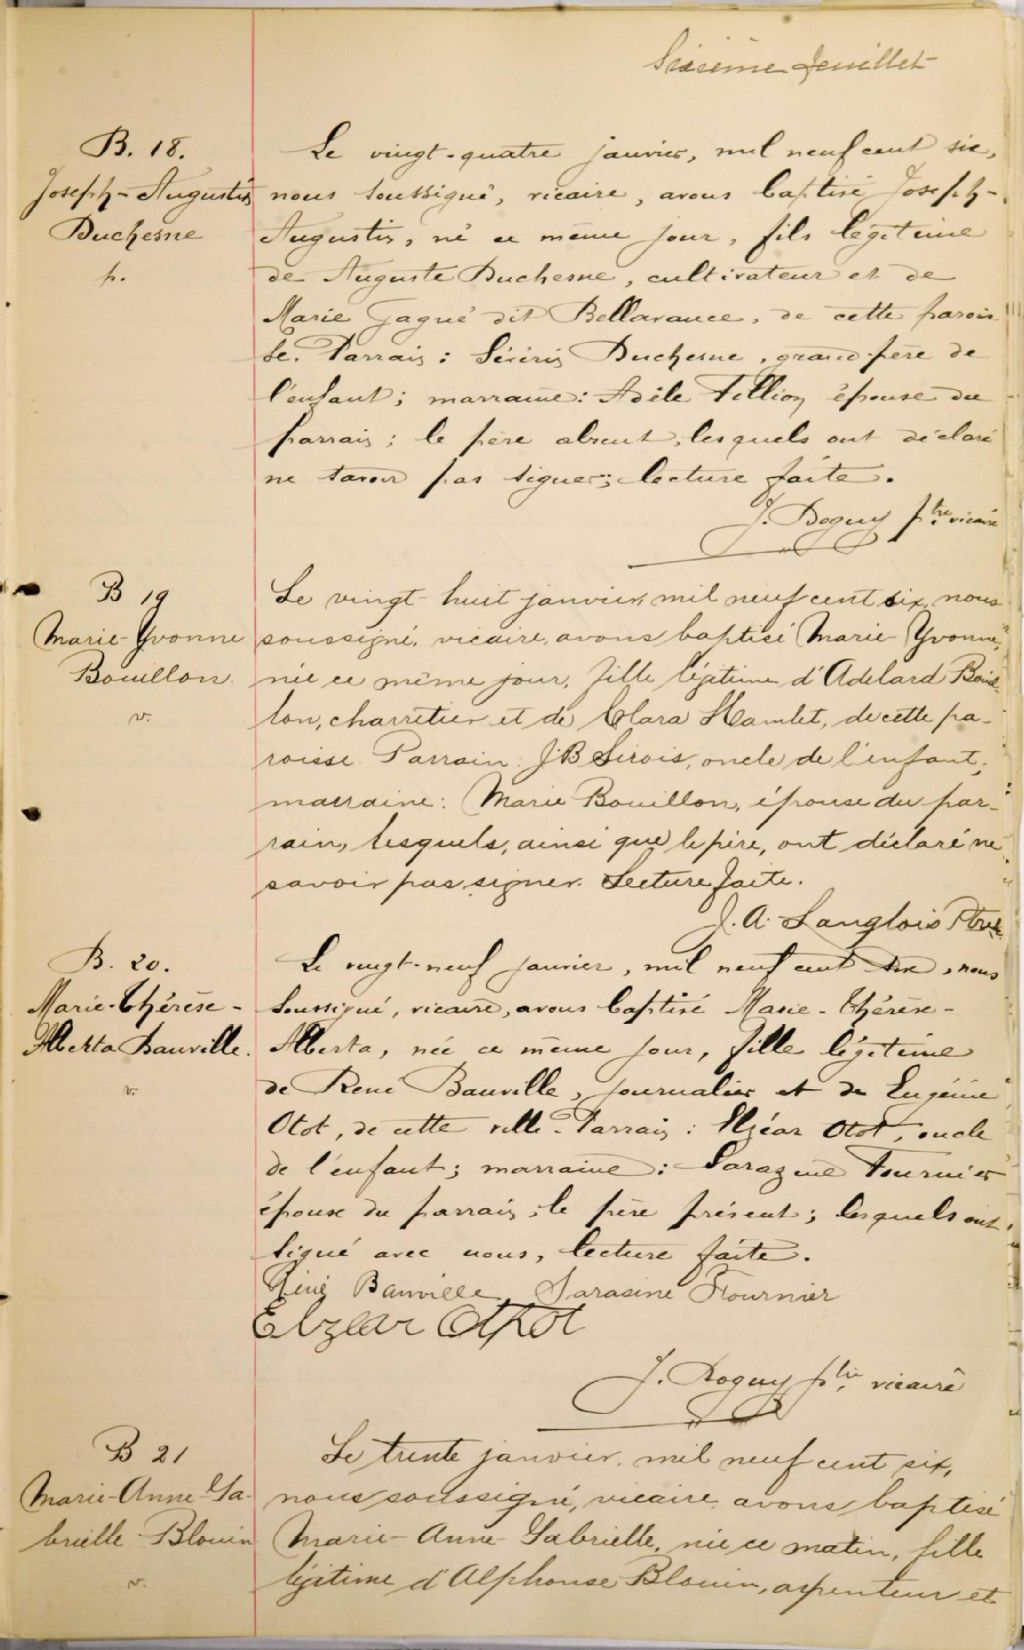 Sixième feuillet
B. 18.
Joseph-Augustin
Duchesne
p.
Le vingt-quatre janvier, mil neuf cent six,
nous soussigné, vicaire, avons baptisé Joseph-
Augustin, né ce même jour, fils légitime
de Auguste Duchesne, cultivateur et de
Marie Gagné dit Bellavance, de cette parois
se. Parrain : Sévérin Duchesne, grand-père de
l'enfant ; marraine : Adèle Fillion épouse du
parrain ; le père absent, lesquels ont déclaré
ne savoir pas signer ; lecture faite.
J. Doguy ptre vicaire
B 19
Marie-Yvonne
Bouillon
v.
Le vingt-huit janvier, mil neuf cent six, nous
soussigné, vicaire, avons baptisé Marie-Yvonne,
née ce même jour, fille légitime d'Adelard Bouil
lon, charretier et de Clara Hamlet, de cette pa-
roisse. Parrain : J.B Sirois, oncle de l'enfant ;
marraine : Marie Bouillon, épouse du par-
rain, lesquels, ainsi que le père, ont déclaré ne
savoir pas signer. Lecture faite.
J. A. Langlois Ptre
B. 20.
Marie-Thérèse-
Alberta Banville.
v.
Le vingt-neuf janvier, mil neuf cent six, nous
soussigné, vicaire, avons baptisé Marie-Thérèse-
Alberta, née ce même jour, fille légitime
de René Banville, journalier et de Eugénie
Otot, de cette ville. Parrain : Elzéar Otot, oncle
de l'enfant ; marraine : Sarazine Fournier
épouse du parrain, le père présent ; lesquels ont
signé avec nous, lecture faite.
Réné Banville Sarasine Fournier
Elzear Othot
J. Doguy ptre vicaire
B 21
Marie-Anne-Ga-
brielle Blouin
v.
Le trente janvier, mil neuf cent six,
nous soussigné, vicaire avons baptisé
Marie-Anne-Gabrielle, née ce matin, fille
légitime d'Alphonse Blouin, arpenteur et